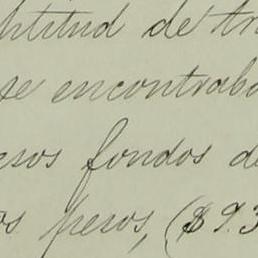 ptitud de tra
se encontraba
esos fondos de
os pesos, ($9.3